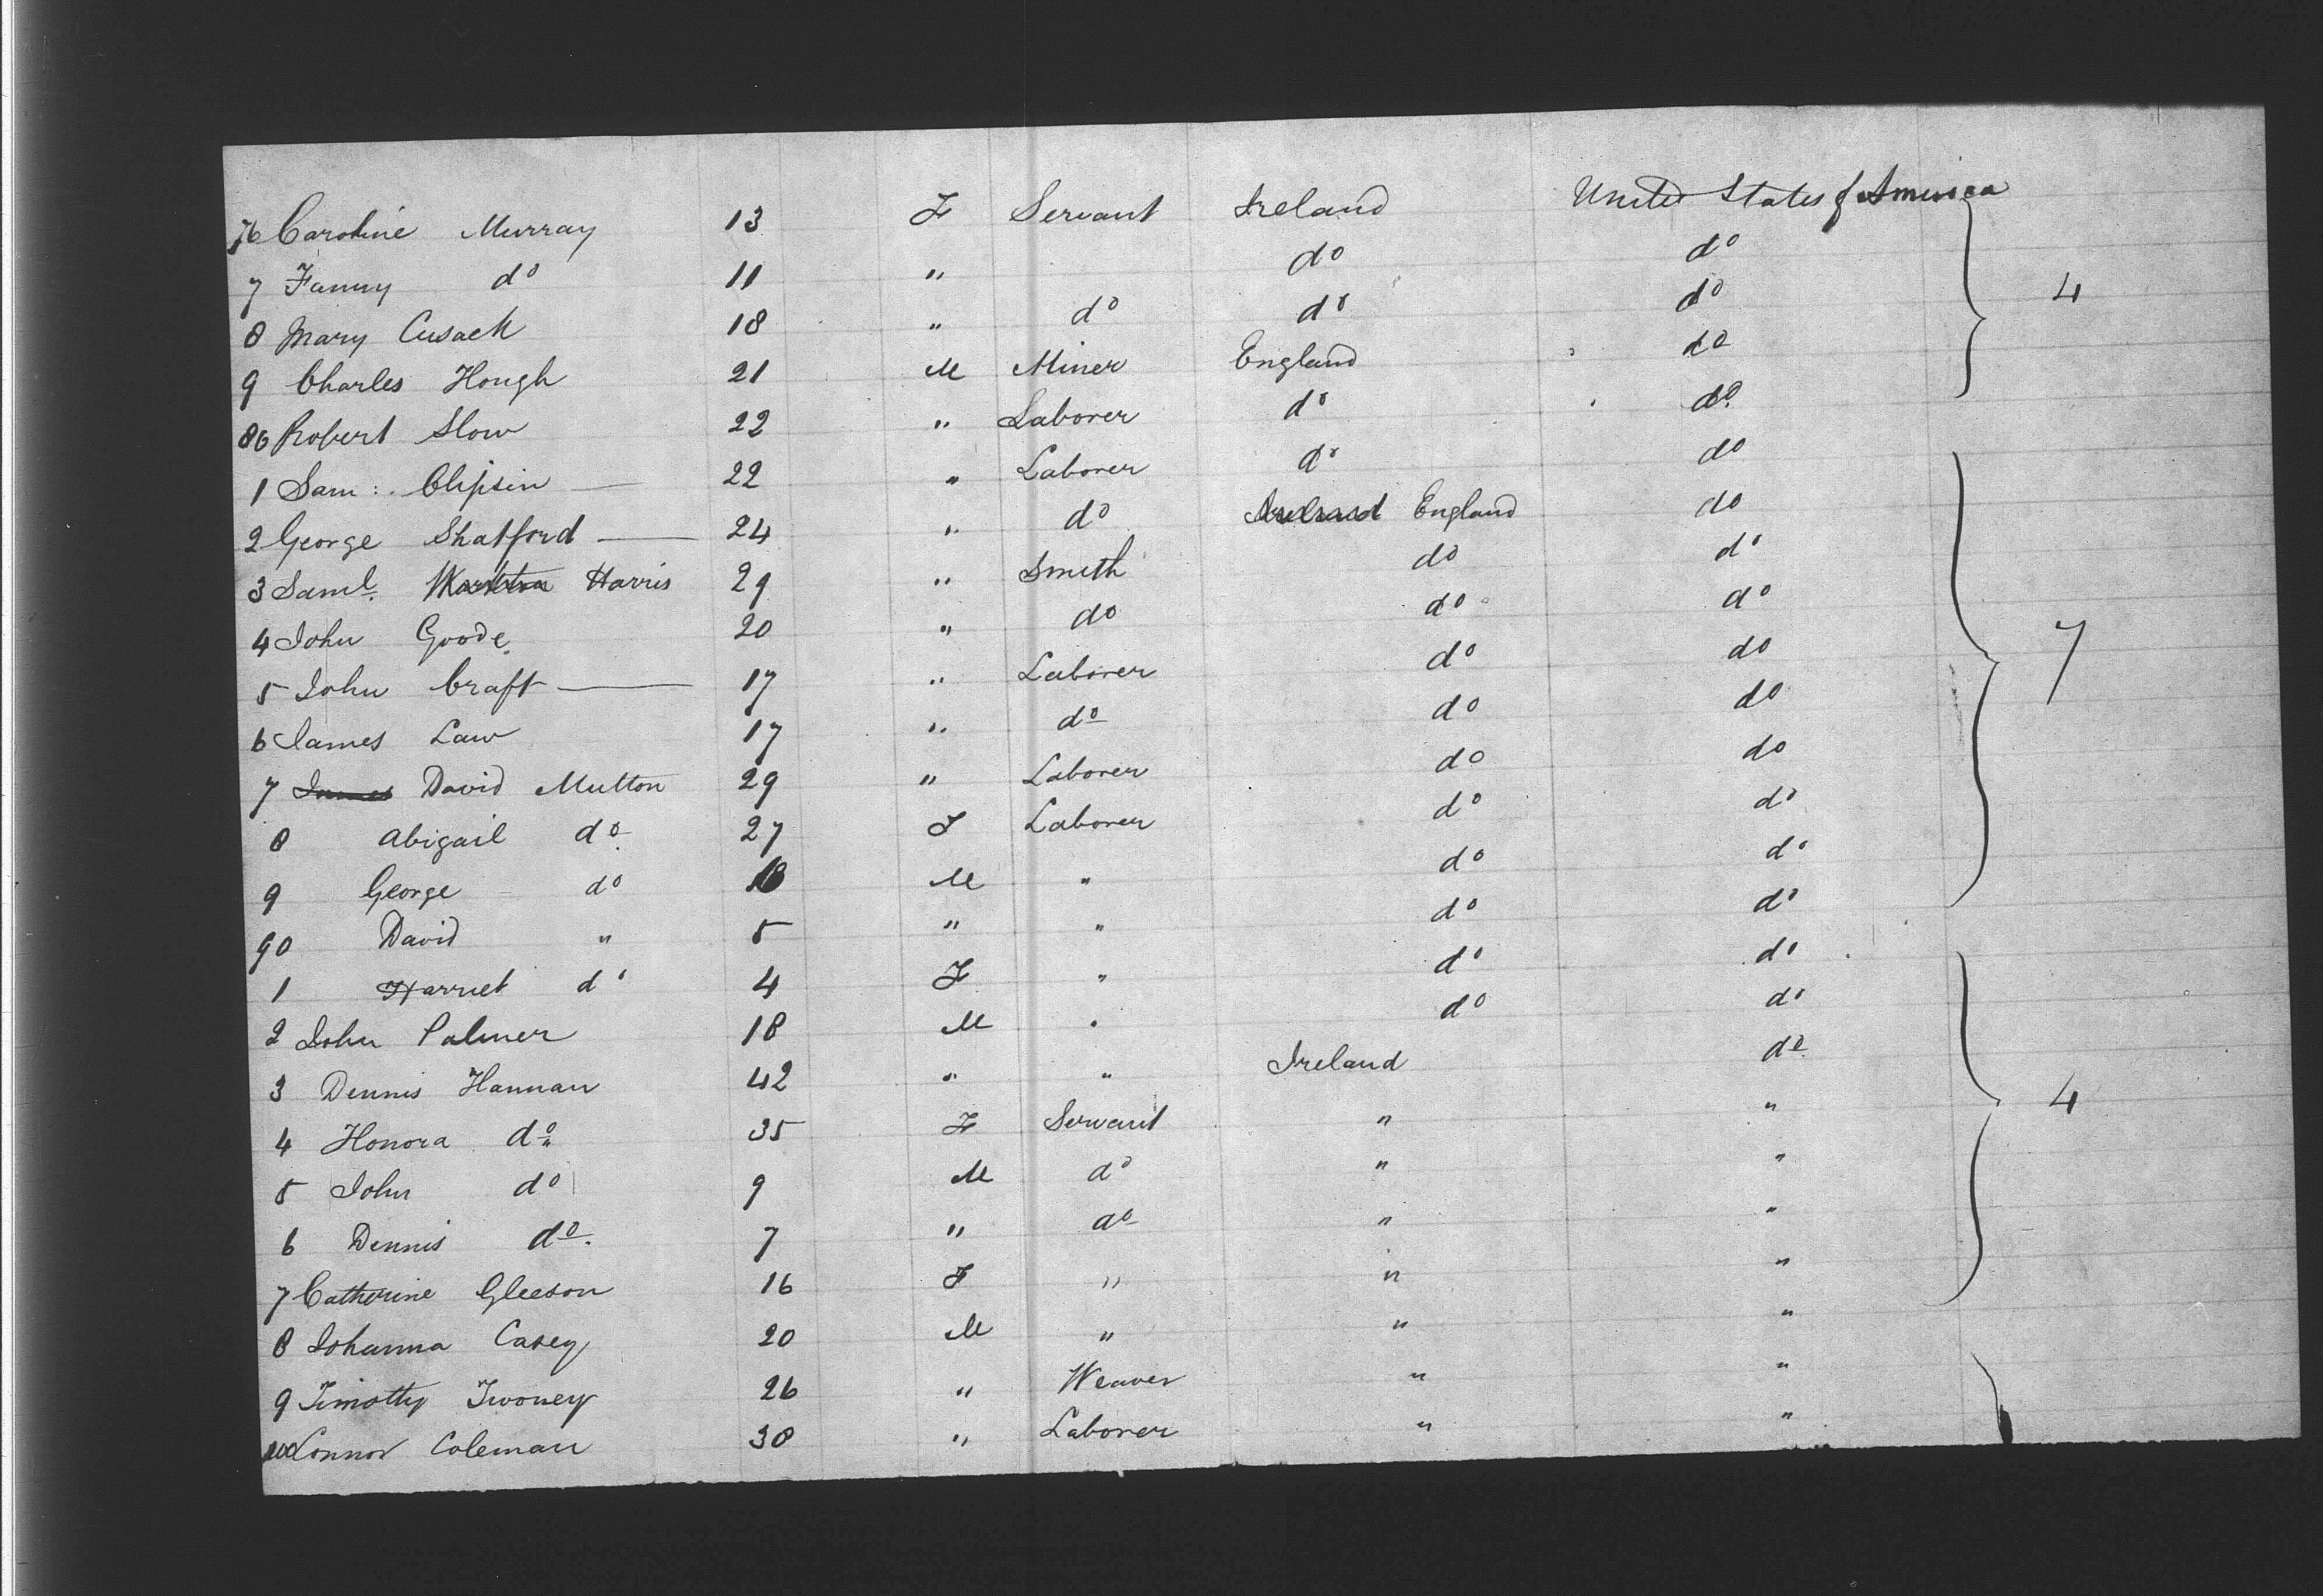 76 Caroline Murray 13 F Servant Ireland United States of America
7 Fanny do 11 " do do
8 Mary Cusack 18 " do do do 4
9 Charles Hough 21 M Miner England do
80 Robert Slow 22 " Laborer do do
1 Sam : Clipsin 22 " Laborer do do
2 George Shatford 24 " do Ireland England do
3 Saml. Harris 29 " Smith do do
4 John Goode 20 " do do do 7
5 John Craft 17 " Laborer do do
6 James Law 17 " do do do
7 James David Mutton 29 " Laborer do do
8 Abigail do 27 F Laborer do do
9 George do M " do do
90 David " 5 " " do do
1 Harriet do 4 F " do do
2 John Palmer 18 M " do do
3 Dennis Hannan 42 " " Ireland do
4 Honora do 35 F Servant " " 4
5 John do 9 M do " "
6 Dennis do. 7 " do " "
7 Catherine Gleeson 16 F " " "
8 Johanna Casey 20 M " " "
9 Timothy Twomey 26 " Weaver " "
100 Connor Coleman 30 " Laborer " "